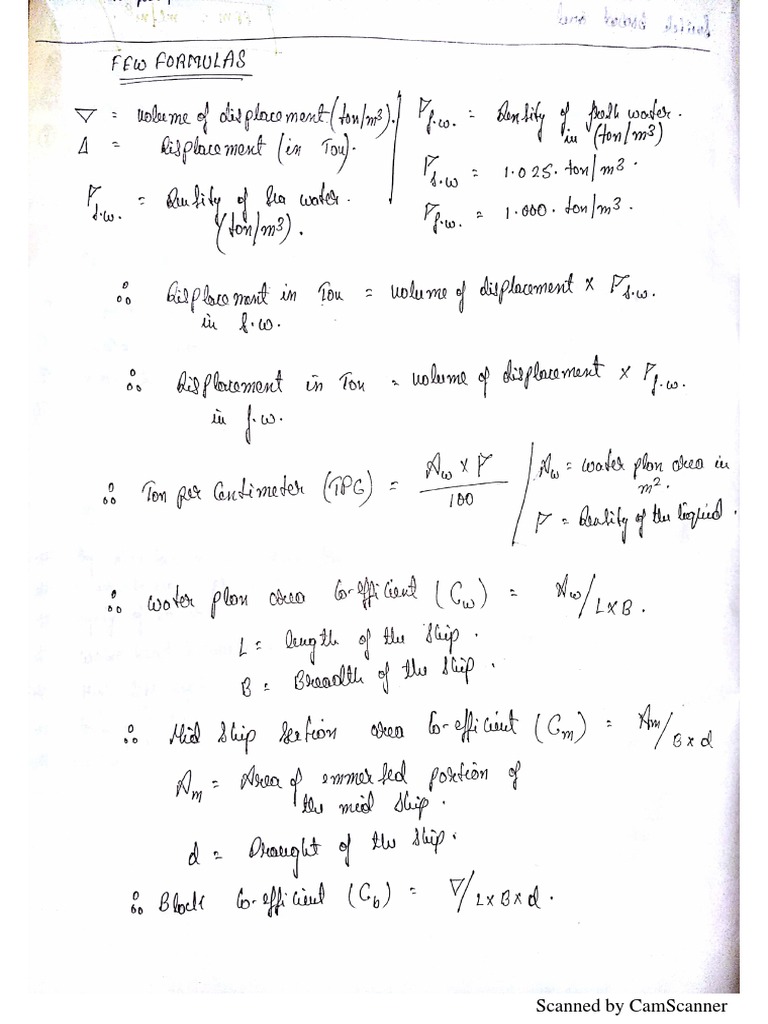 FEW FORMULAS
▽ = volume of displacement (ton/m³).
Δ = displacement (in Ton).
ρ s.w. = Density of Sea water.
(ton/m³).
ρ f.w. = Density of fresh water.
in (ton/m³)
ρ s.w = 1.025. ton/m³.
ρ f.w. = 1.000. ton/m³.
∴ Displacement in Ton = volume of displacement × ρ s.w.
in s.w.
∴ Displacement in Ton = volume of displacement × ρ f.w.
in f.w.
∴ Ton per Centimeter (TPC) = Aw × ρ / 100
Aw = water plan area in
m².
ρ = Density of the liquid.
∴ water plan area Co-efficient (Cw) = Aw/L×B.
L = length of the ship.
B = Breadth of the ship.
∴ Mid Ship Section area Co-efficient (Cm) = Am/B×d
Am = Area of emmersed portion of
the mid ship.
d = Draught of the ship.
∴ Block Co-efficient (Cb) = ▽/L×B×d.
Scanned by CamScanner